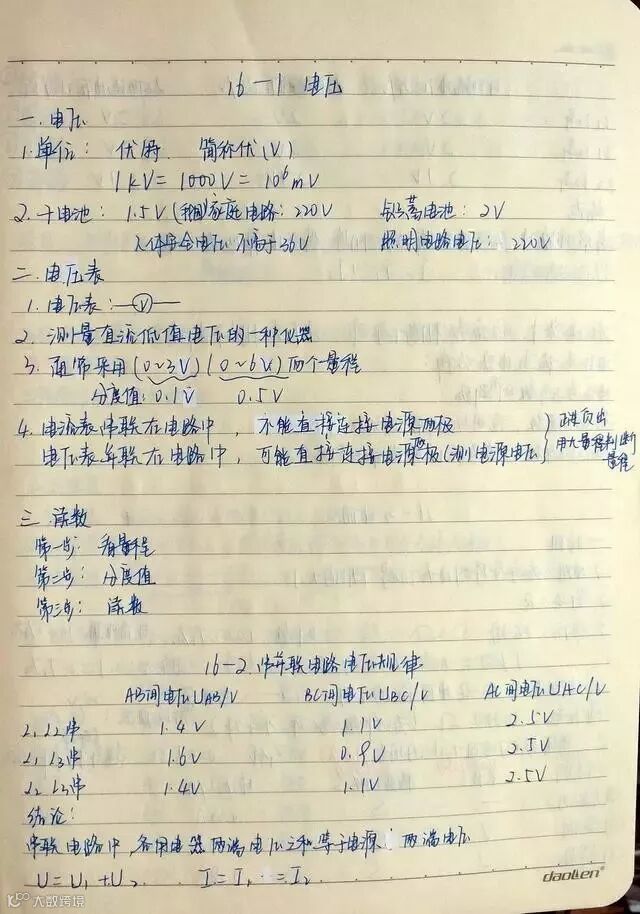 16-1 电压
一. 电压
1. 单位: 伏特 简称伏(V)
1kV = 1000V = 10⁶mV
2. 干电池: 1.5V 家庭电路: 220V 铅蓄电池: 2V
人体安全电压 不高于36V 照明电路电压: 220V
二. 电压表
1. 电压表: V
2. 测量直流低值电压的一种仪器
3. 通常采用(0~3V)(0~6V)两个量程
分度值: 0.1V 0.5V
4. 电流表串联在电路中, 不能直接连接电源两极
电压表并联在电路中, 可能直接连接电源两极(测电源电压)
正进负出
用大量程判断
量程
三. 读数
第一步: 看量程
第二步: 分度值
第三步: 读数
16-2. 串并联电路电压规律
AB间电压UAB/V BC间电压UBC/V AC间电压UAC/V
L1 L2串 1.4V 1.1V 2.5V
L1 L3串 1.6V 0.9V 2.5V
L2 L3串 1.4V 1.1V 2.5V
结论:
串联电路中, 各用电器两端电压之和等于电源两端电压
U=U1+U2 I=I1=I2
daolien
大数跨境